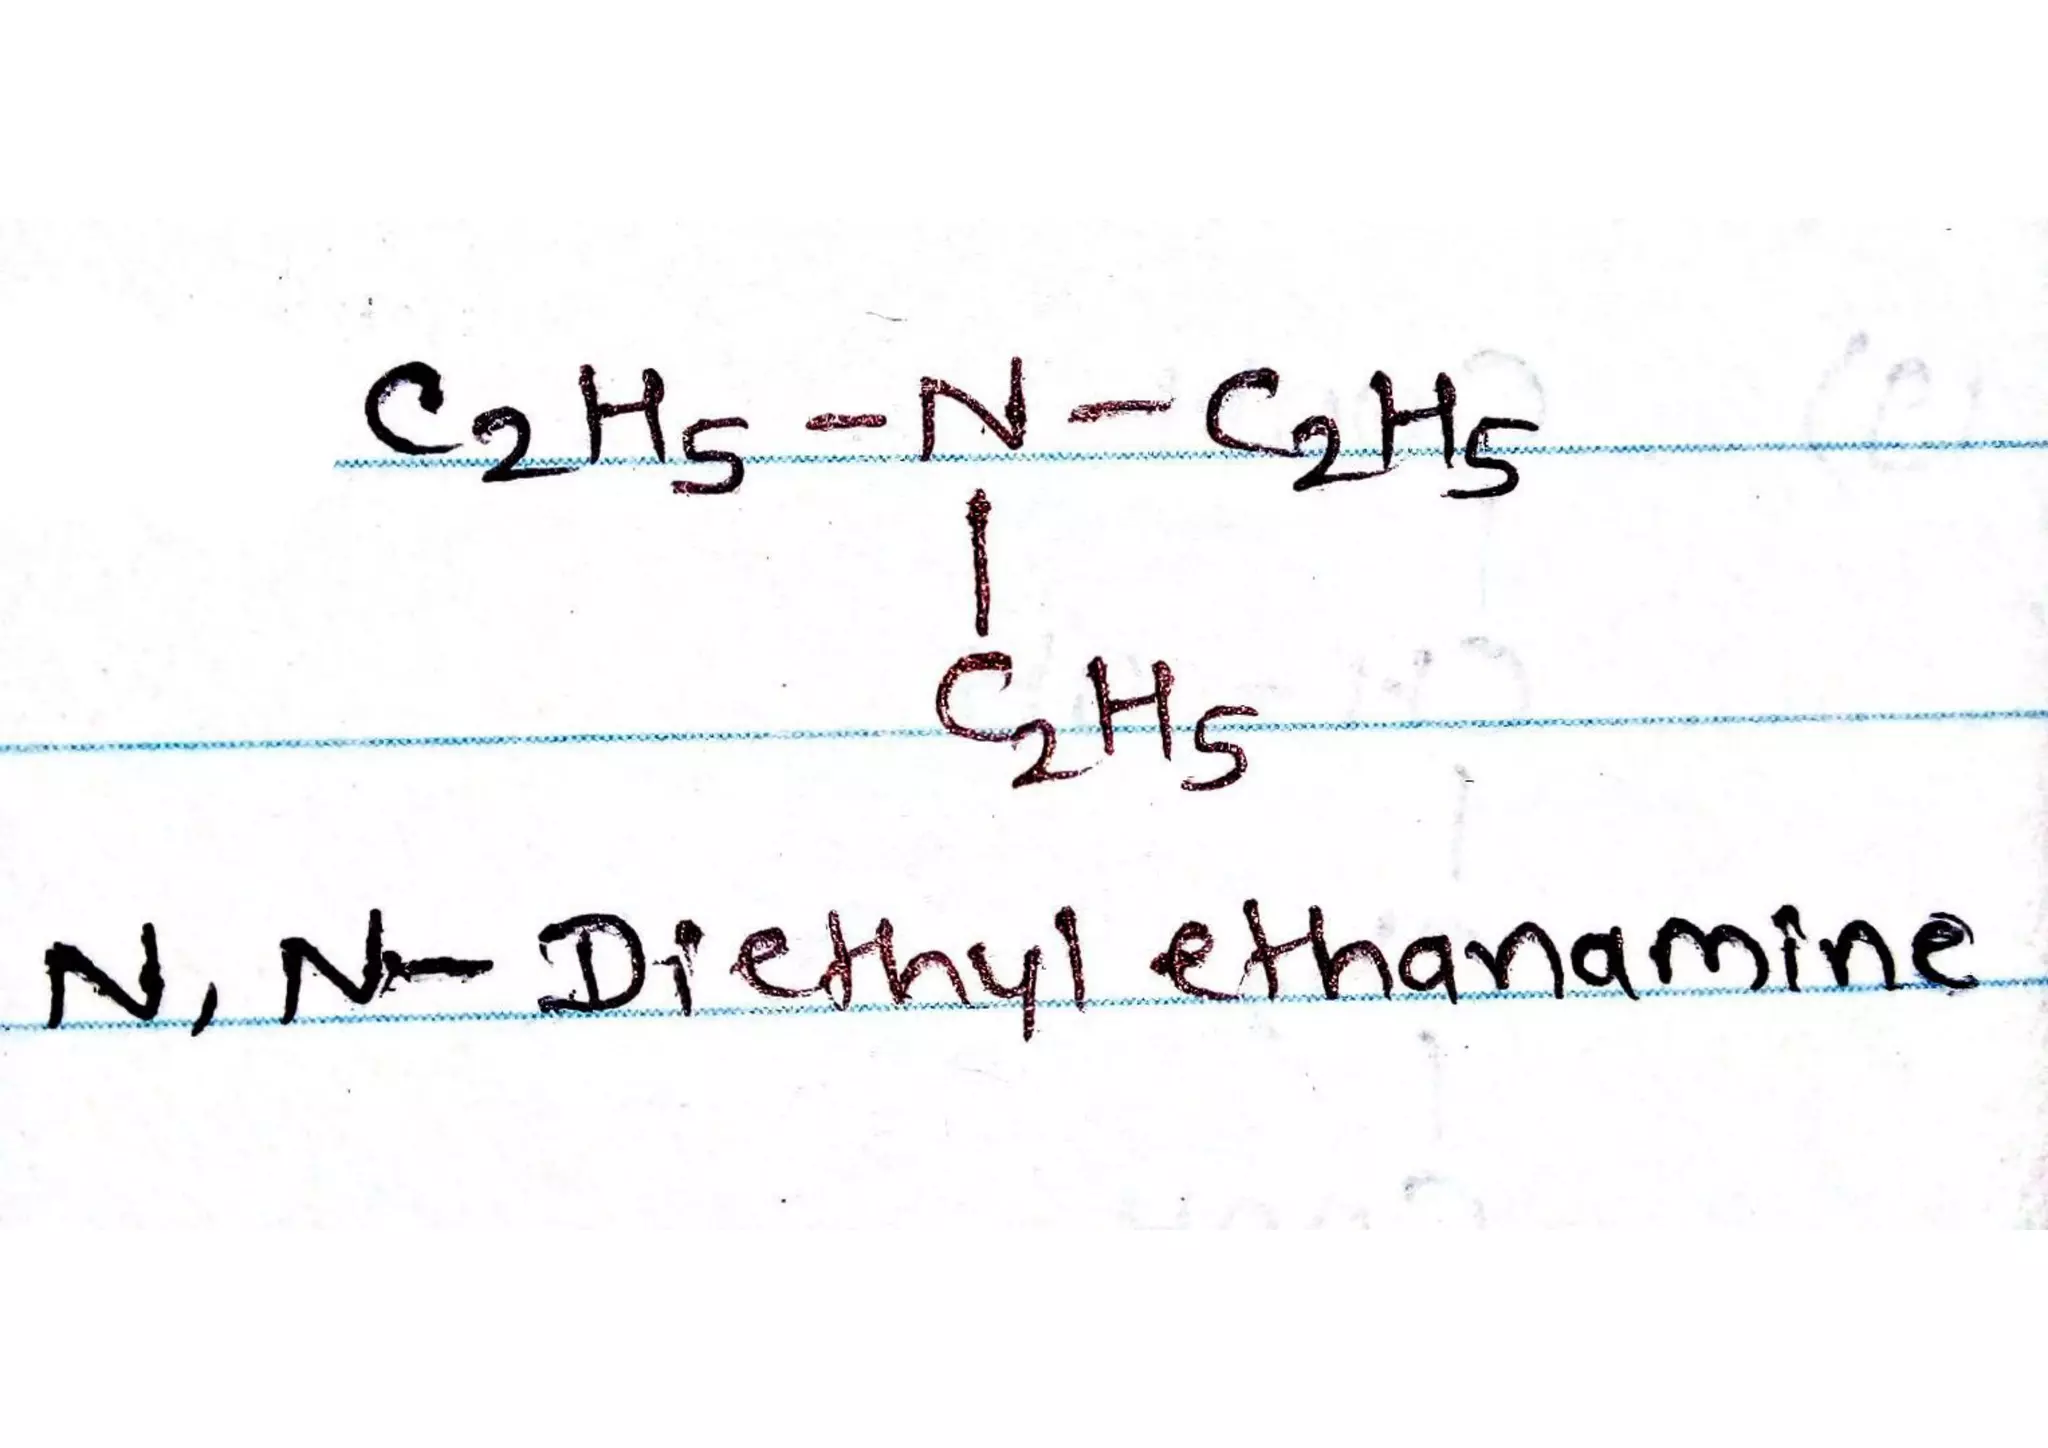 C2H5 - N - C2H5
|
C2H5
N, N- Diethyl ethanamine